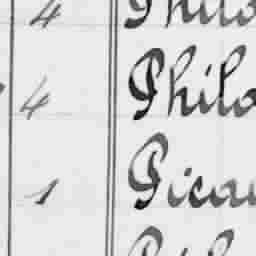 4 Philo
4 Philo
1 Picau